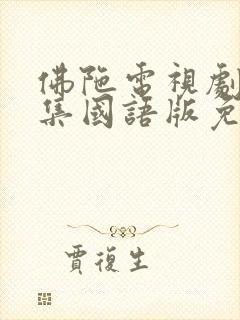 佛陁電視劇
集國語版免
賈復生